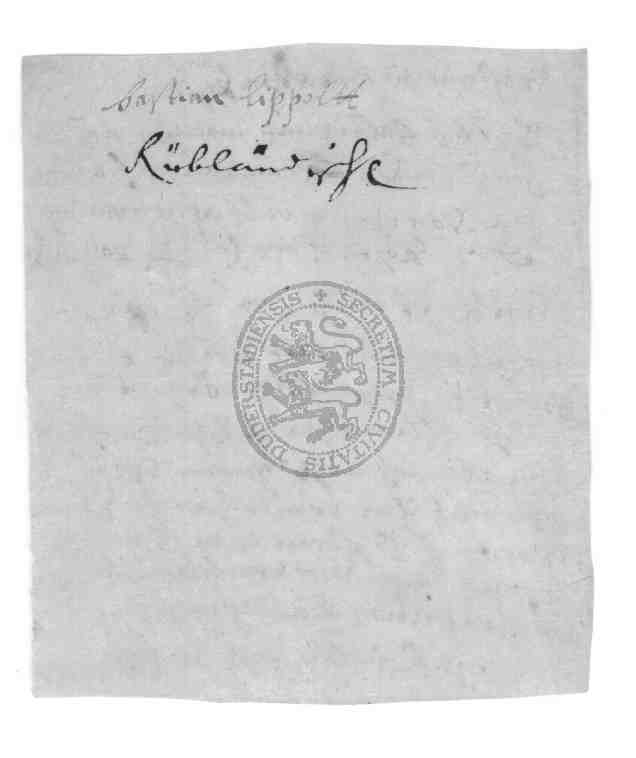 bastian lippoltt
Rübländische
SECRETUM CIVITATIS DUDERSTADIENSIS